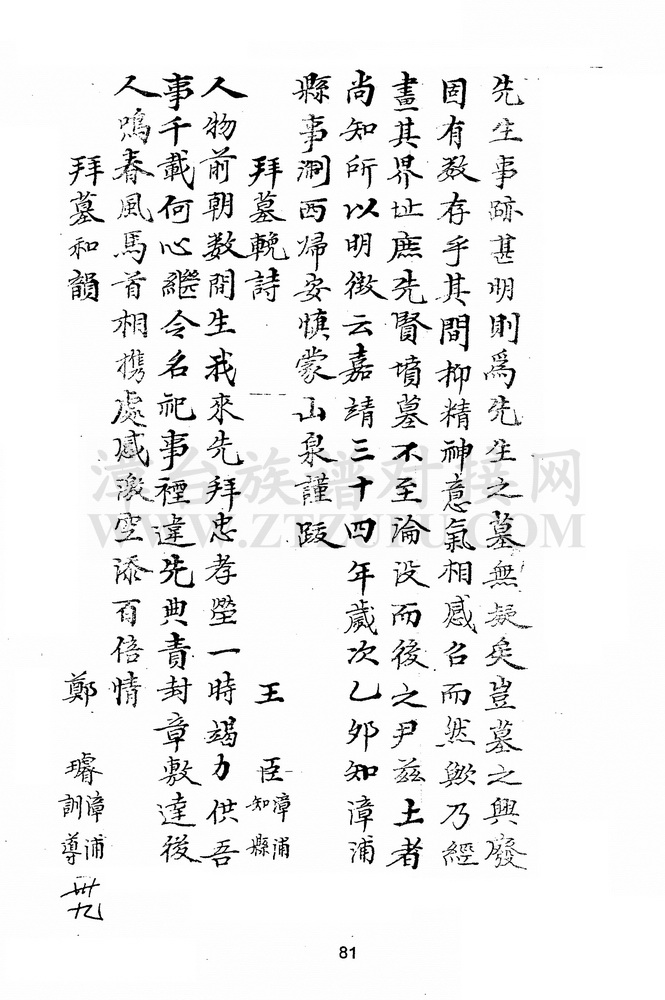 先生事跡甚明則爲先生之墓無疑矣豈墓之興廢
固有数存乎其間抑精神意氣相感召而然歟乃經
畫其界址庶先賢墳墓不至淪没而後之尹兹土者
尚知所以明徴云嘉靖三十四年歲次乙夘知漳浦
縣事澗西歸安慎蒙山泉謹跋
拜墓輓詩 王 臣 漳浦知縣
人物前朝数問生我來先拜忠孝塋一時竭力供吾
事千載何心繼令名祀事禋違先典責封章敷達後
人鳴春風馬首相携處感激空添百倍情
拜墓和韻 鄭 璿 漳浦訓導
卅九
81
漳台族谱对接网
WWW.ZTZUPU.COM